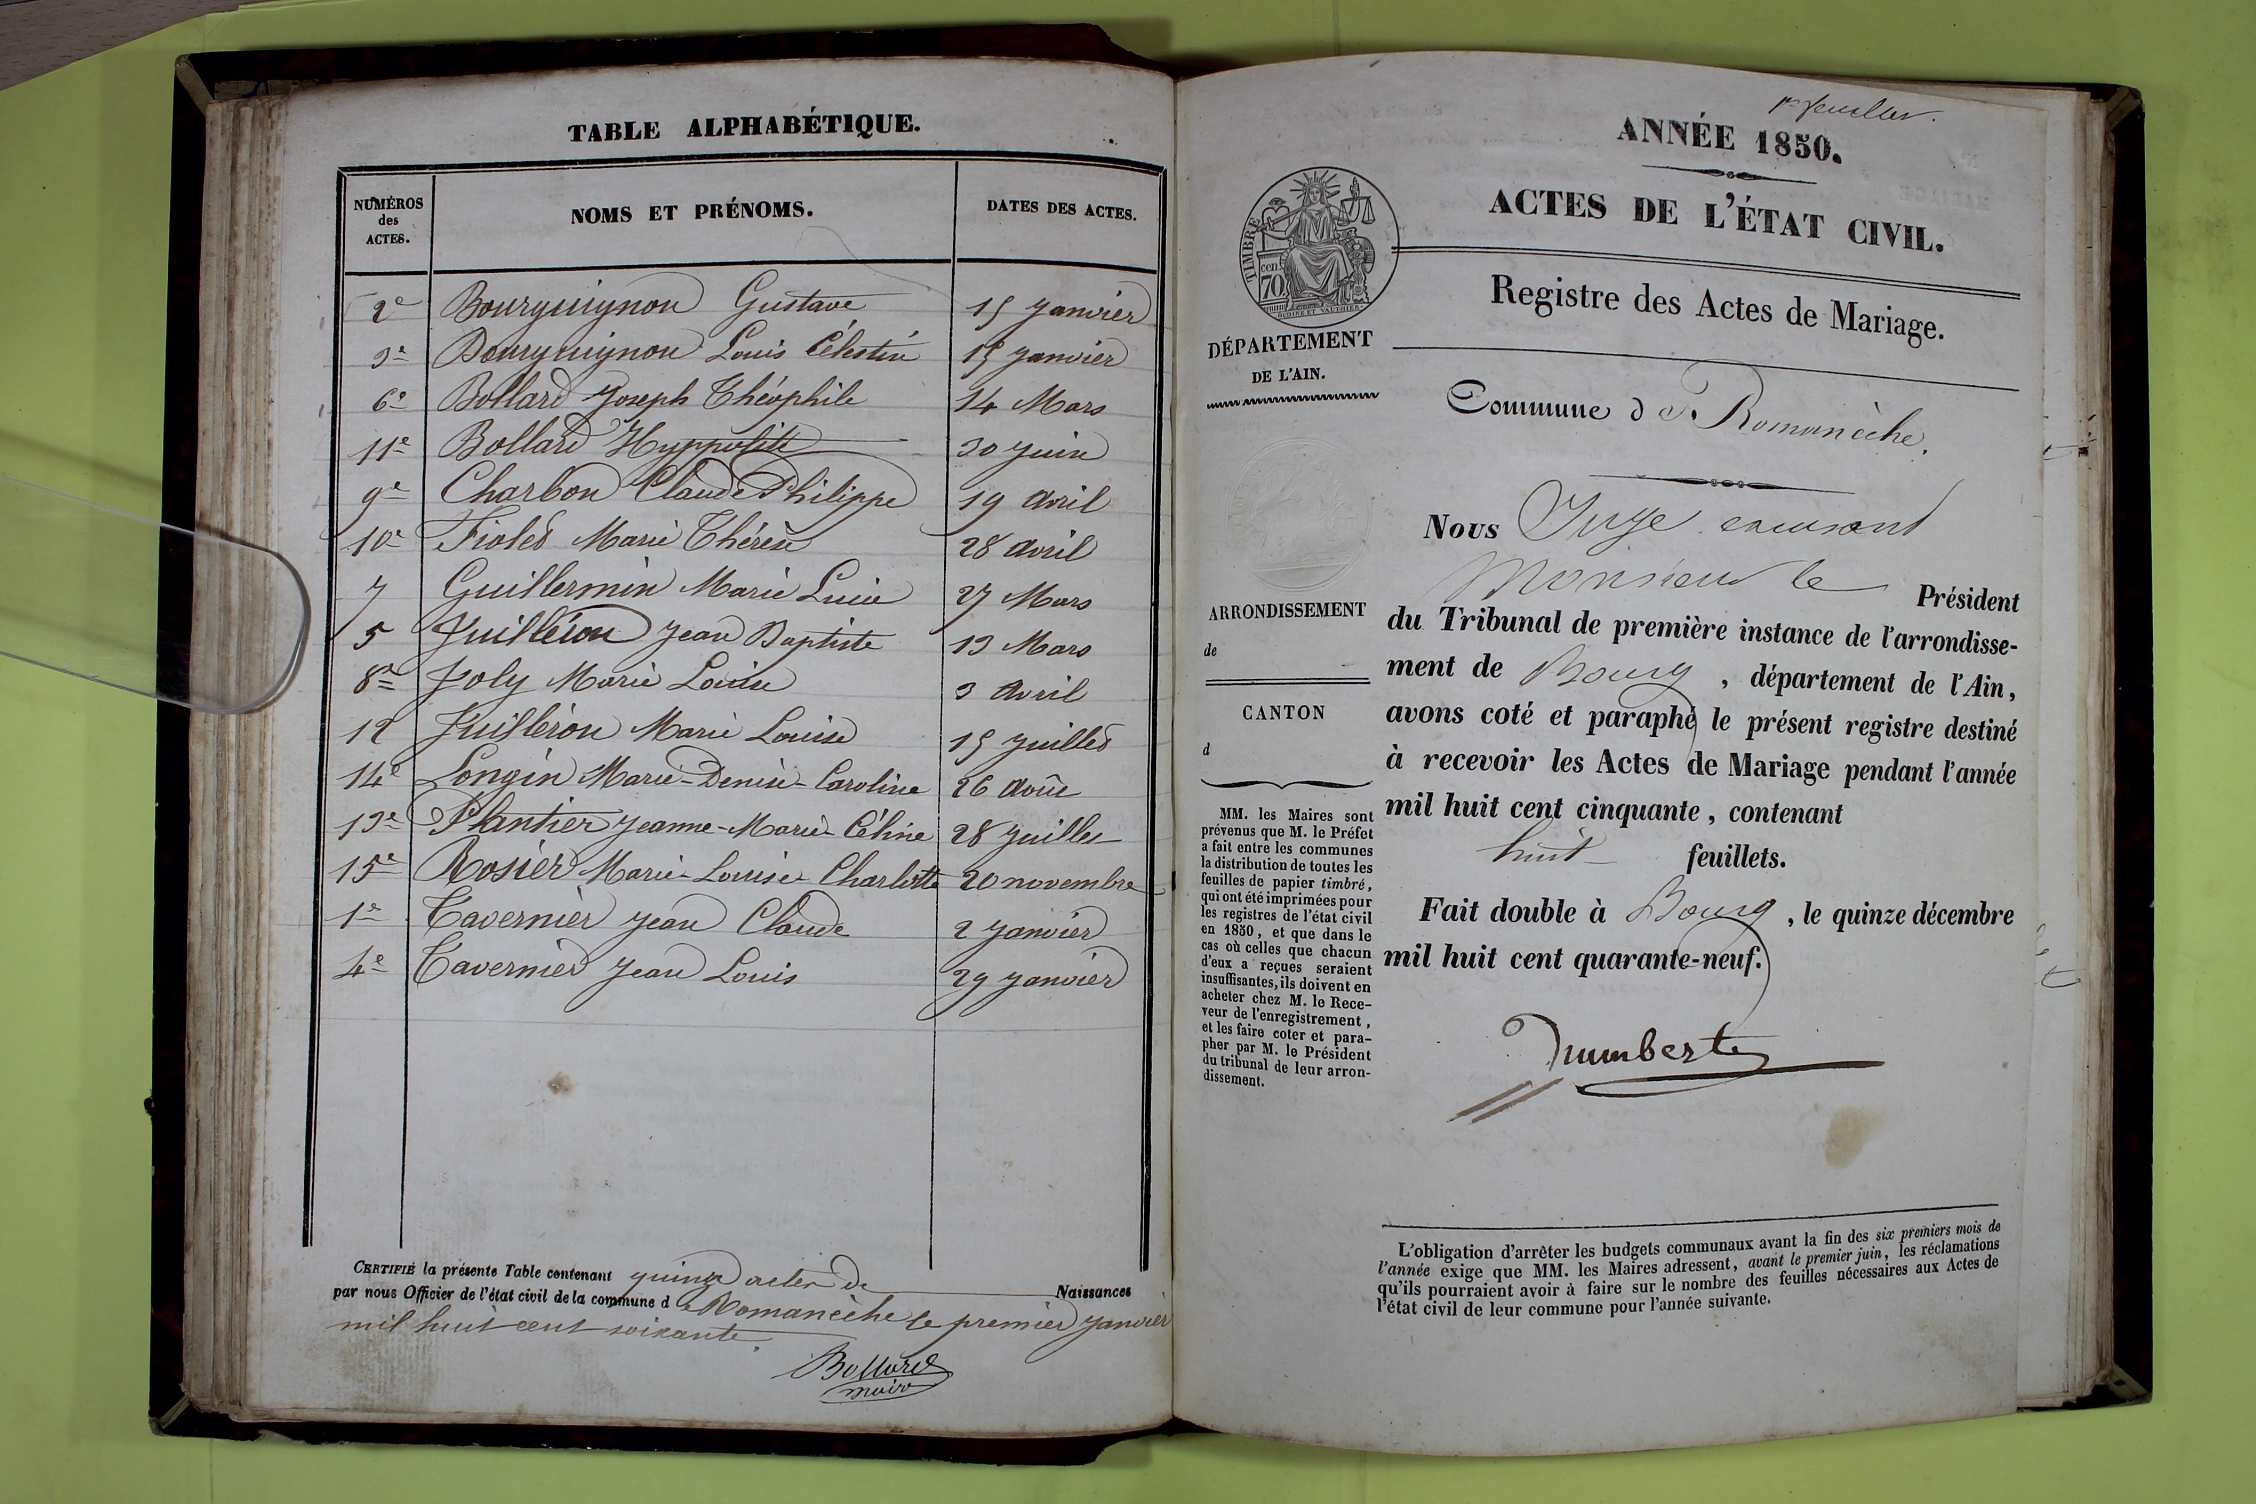 TABLE ALPHABÉTIQUE.
NUMÉROS des ACTES. NOMS ET PRÉNOMS. DATES DES ACTES.
2e Bourguignon Gustave 15 Janvier
3e Bourguignon Louis Célestin 15 Janvier
6e Bollard Joseph Théophile 14 Mars
11e Bollard Hyppolite 30 Juin
9e Charbon Claude Philippe 19 Avril
10e Fioled Marie Thérèse 28 Avril
7 Guillermin Marie Lucie 27 Mars
5 Juilléron Jean Baptiste 13 Mars
8e Joly Marie Louise 3 Avril
12 Juilléron Marie Louise 15 Juillet
14e Longin Marie-Denise-Caroline 26 Août
13e Plantier Jeanne-Marie-Céline 28 Juillet
15e Rosier Marie-Louise-Charlotte 20 novembre
1e Tavernier Jean Claude 2 Janvier
4e Tavernier Jean Louis 29 Janvier
CERTIFIÉ la présente Table contenant quinze actes de Naissances
par nous Officier de l'état civil de la commune de Romanèche le premier Janvier
mil huit cent soixante.
Bollard
maire
1er feuillet.
ANNÉE 1850.
ACTES DE L'ÉTAT CIVIL.
Registre des Actes de Mariage.
TIMBRE
70 cen.
DÉPARTEMENT
DE L'AIN.
Commune de Romanèche.
Nous Juge
Monsieur le Président
du Tribunal de première instance de l'arrondisse-
ment de Bourg, département de l'Ain,
avons coté et paraphé le présent registre destiné
à recevoir les Actes de Mariage pendant l'année
mil huit cent cinquante, contenant
huit feuillets.
Fait double à Bourg, le quinze décembre
mil huit cent quarante-neuf.
ARRONDISSEMENT
de
CANTON
d
MM. les Maires sont
prévenus que M. le Préfet
a fait entre les communes
la distribution de toutes les
feuilles de papier timbré,
qui ont été imprimées pour
les registres de l'état civil
en 1850, et que dans le
cas où celles que chacun
d'eux a reçues seraient
insuffisantes, ils doivent en
acheter chez M. le Rece-
veur de l'enregistrement,
et les faire coter et para-
pher par M. le Président
du tribunal de leur arron-
dissement.
L'obligation d'arrêter les budgets communaux avant la fin des six premiers mois de
l'année exige que MM. les Maires adressent, avant le premier juin, les réclamations
qu'ils pourraient avoir à faire sur le nombre des feuilles nécessaires aux Actes de
l'état civil de leur commune pour l'année suivante.